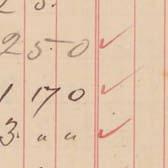 2 5.
2 5. 0 ✓
1 17 0 ✓
3. " " ✓